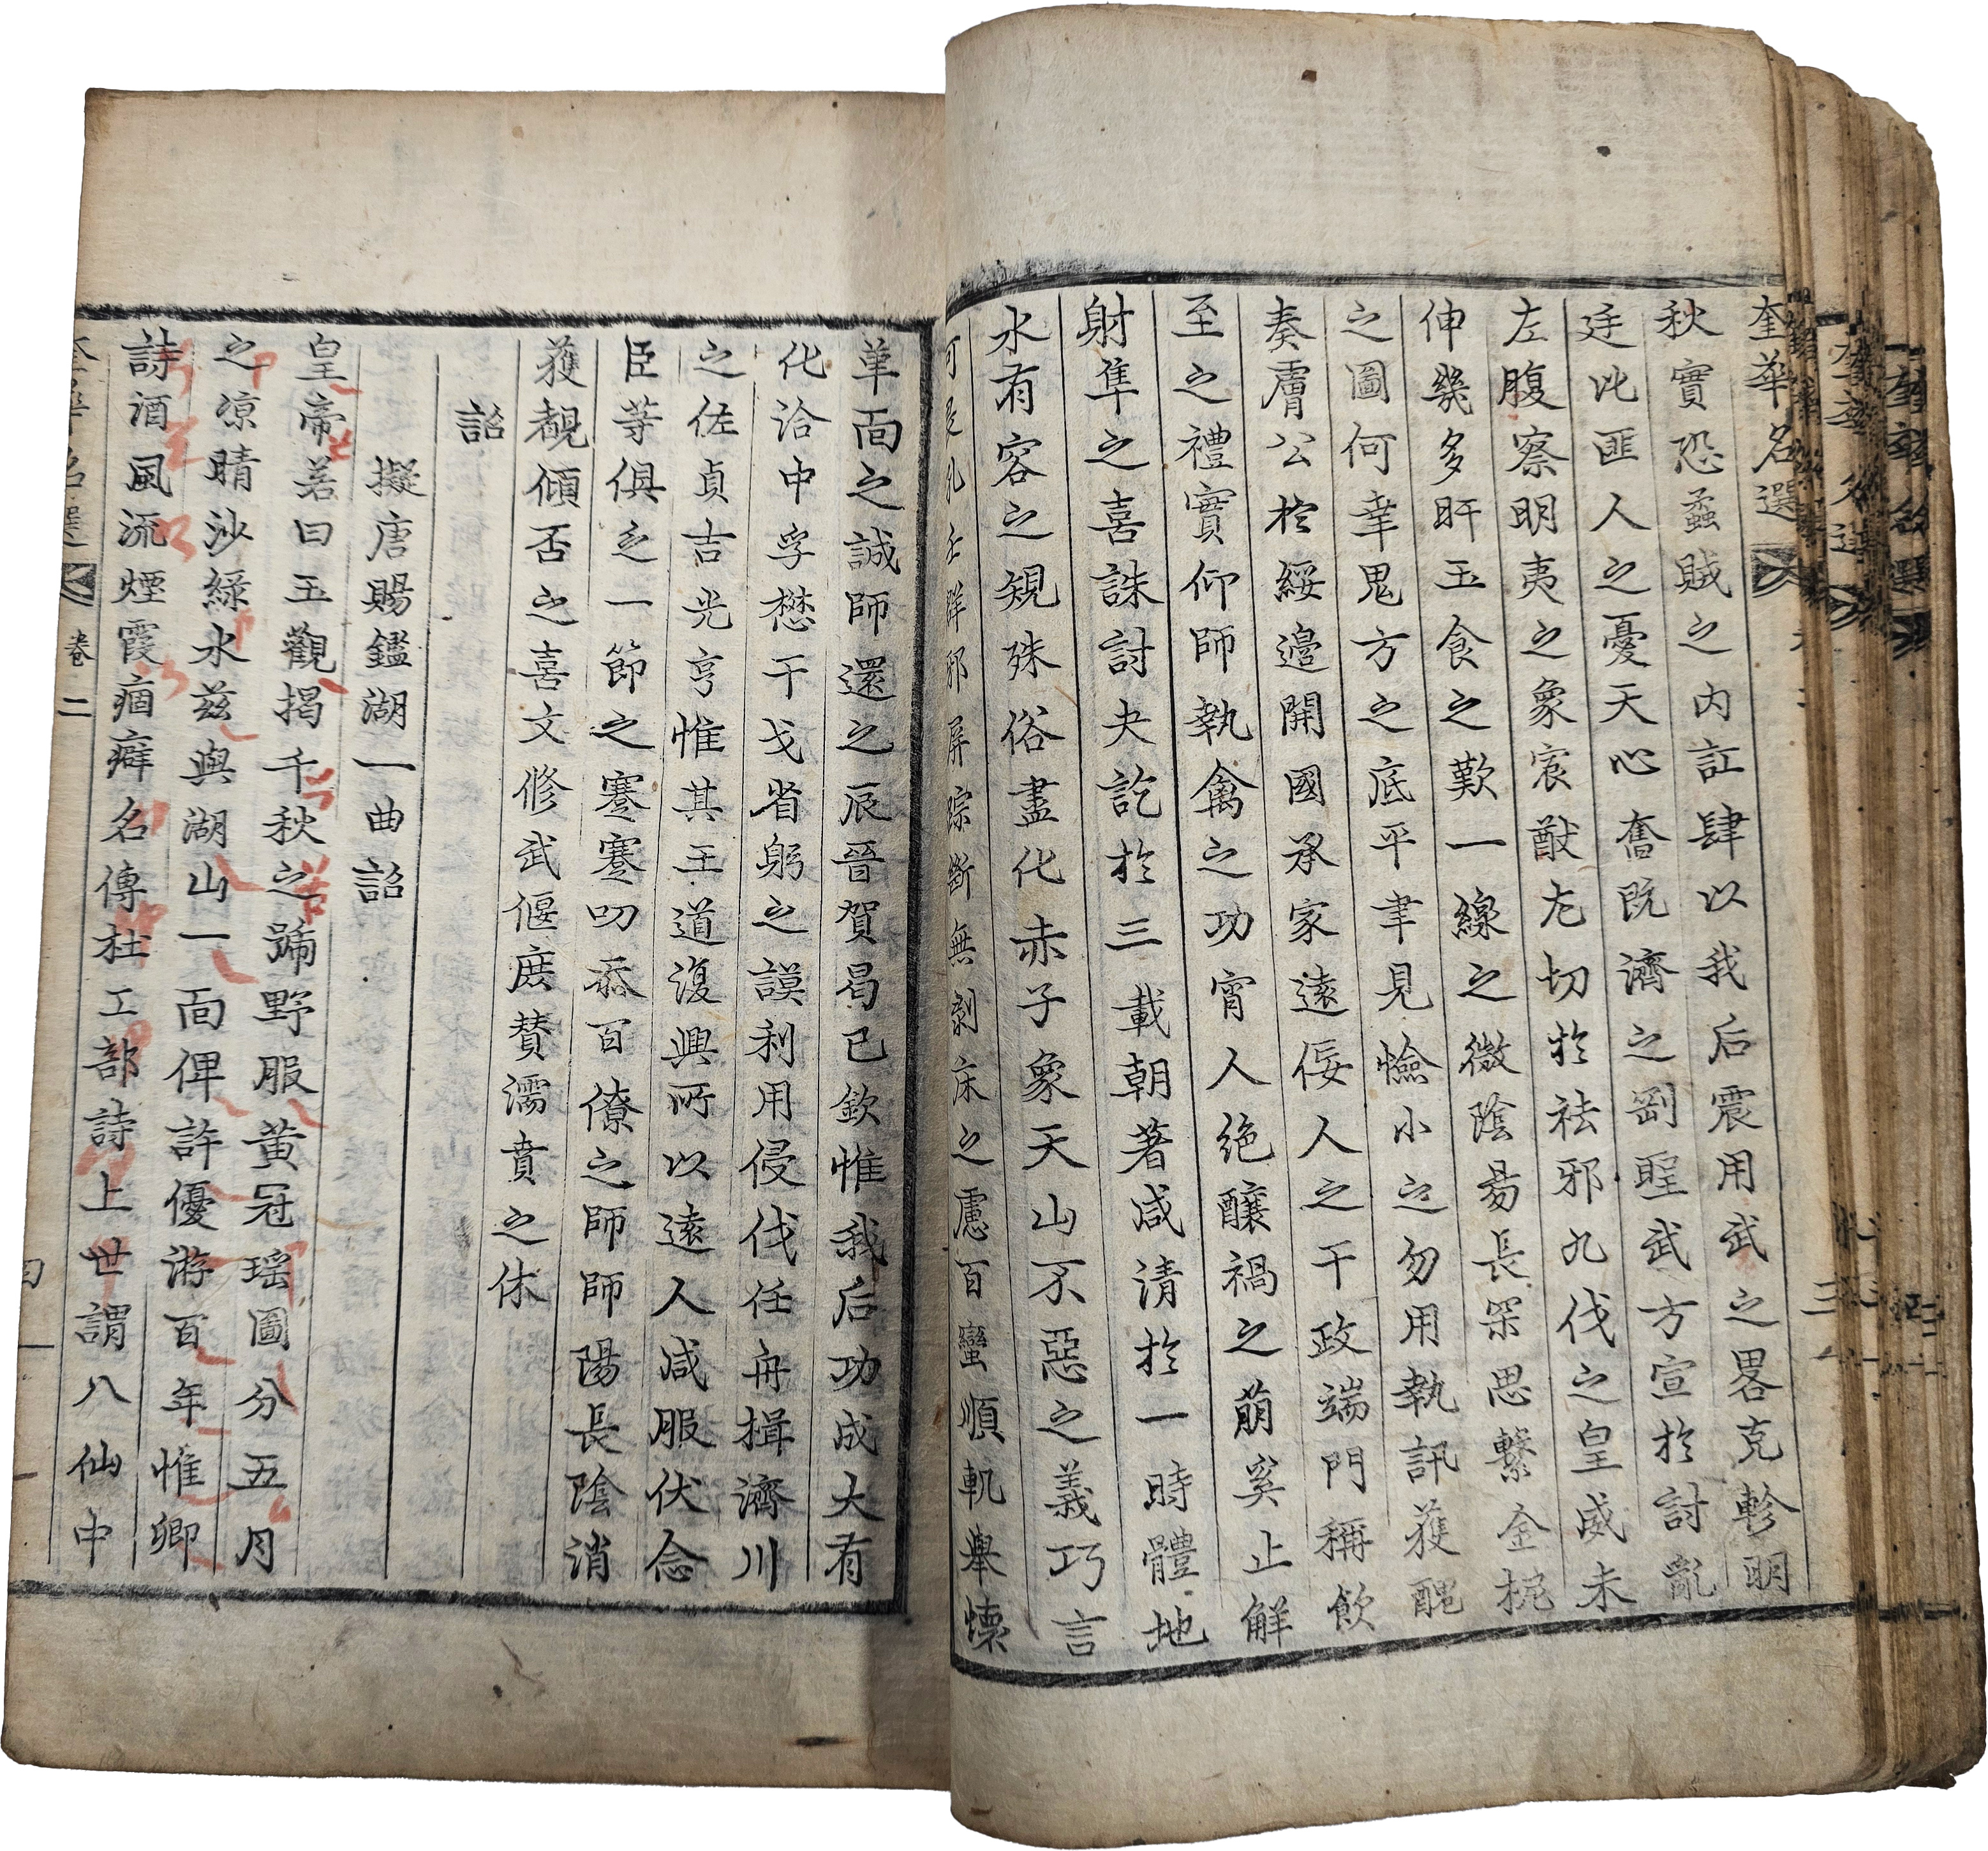 奎華名選
秋實恐蟊賊之內訌肆以我后震用武之畧克軫明
廷比匪人之憂天心奮旣濟之剛聖武方宣於討亂
左腹察明夷之象宸猷尤切於祛邪九伐之皇威未
伸幾多旰玉食之歎一線之微陰易長深思繫金柅
之圖何幸鬼方之底平聿見憸小之勿用執訊獲醜
奏膚公於綏邊開國承家遠佞人之干政端門稱飮
至之禮實仰師執禽之功宵人絶釀禍之萠奚止解
射隼之喜誅討夬訖於三載朝著咸清於一時體地
水有容之規殊俗盡化赤子象天山不惡之義巧言
可畏孔壬群邪屛踪斷無剝床之慮百蠻順軌擧懷
革面之誠師還之辰晉賀曷已欽惟我后功成大有
化洽中孚懋干戈省躬之謨利用侵伐任舟楫濟川
之佐貞吉光亨惟其王道復興所以遠人咸服伏念
臣等俱乏一節之蹇蹇叨忝百僚之師師陽長陰消
獲覩傾否之喜文修武偃庶贊濡賁之休
詔
擬唐賜鑑湖一曲詔
皇帝若曰玉觀揭千秋之號野服黃冠瑶圖分五月
之凉晴沙綠水玆與湖山一面俾許優游百年惟卿
詩酒風流煙霞痼癖名傳杜工部詩上世謂八仙中
奎華名選 卷二 四